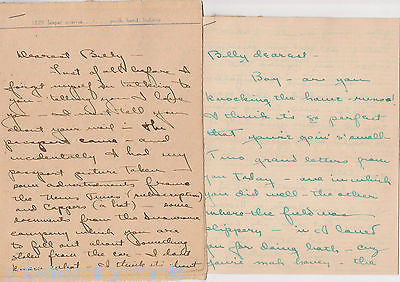 south bend, indiana
Dearest Billy —
First of all before I
forgot myself in talking
to you + telling you I love
you — I must tell you
about your mail — The
passport came — and
incidentally I had my
passport picture taken —
some advertisements from
the News Times (subscription)
and Cappers (a hat) — some
documents from the insurance
company which you are
to fill out about something
stolen from the car — I don't
know what — I think it's
Billy dearest —
Boy — are you
knocking the home-runs!
I think it's so perfect
that you're goin' so well —
Two grand letters from
you today — one in which
you did well — the other
where the field was
slippery — 'n I loved
you for doing both — coz
you're mah honey — the